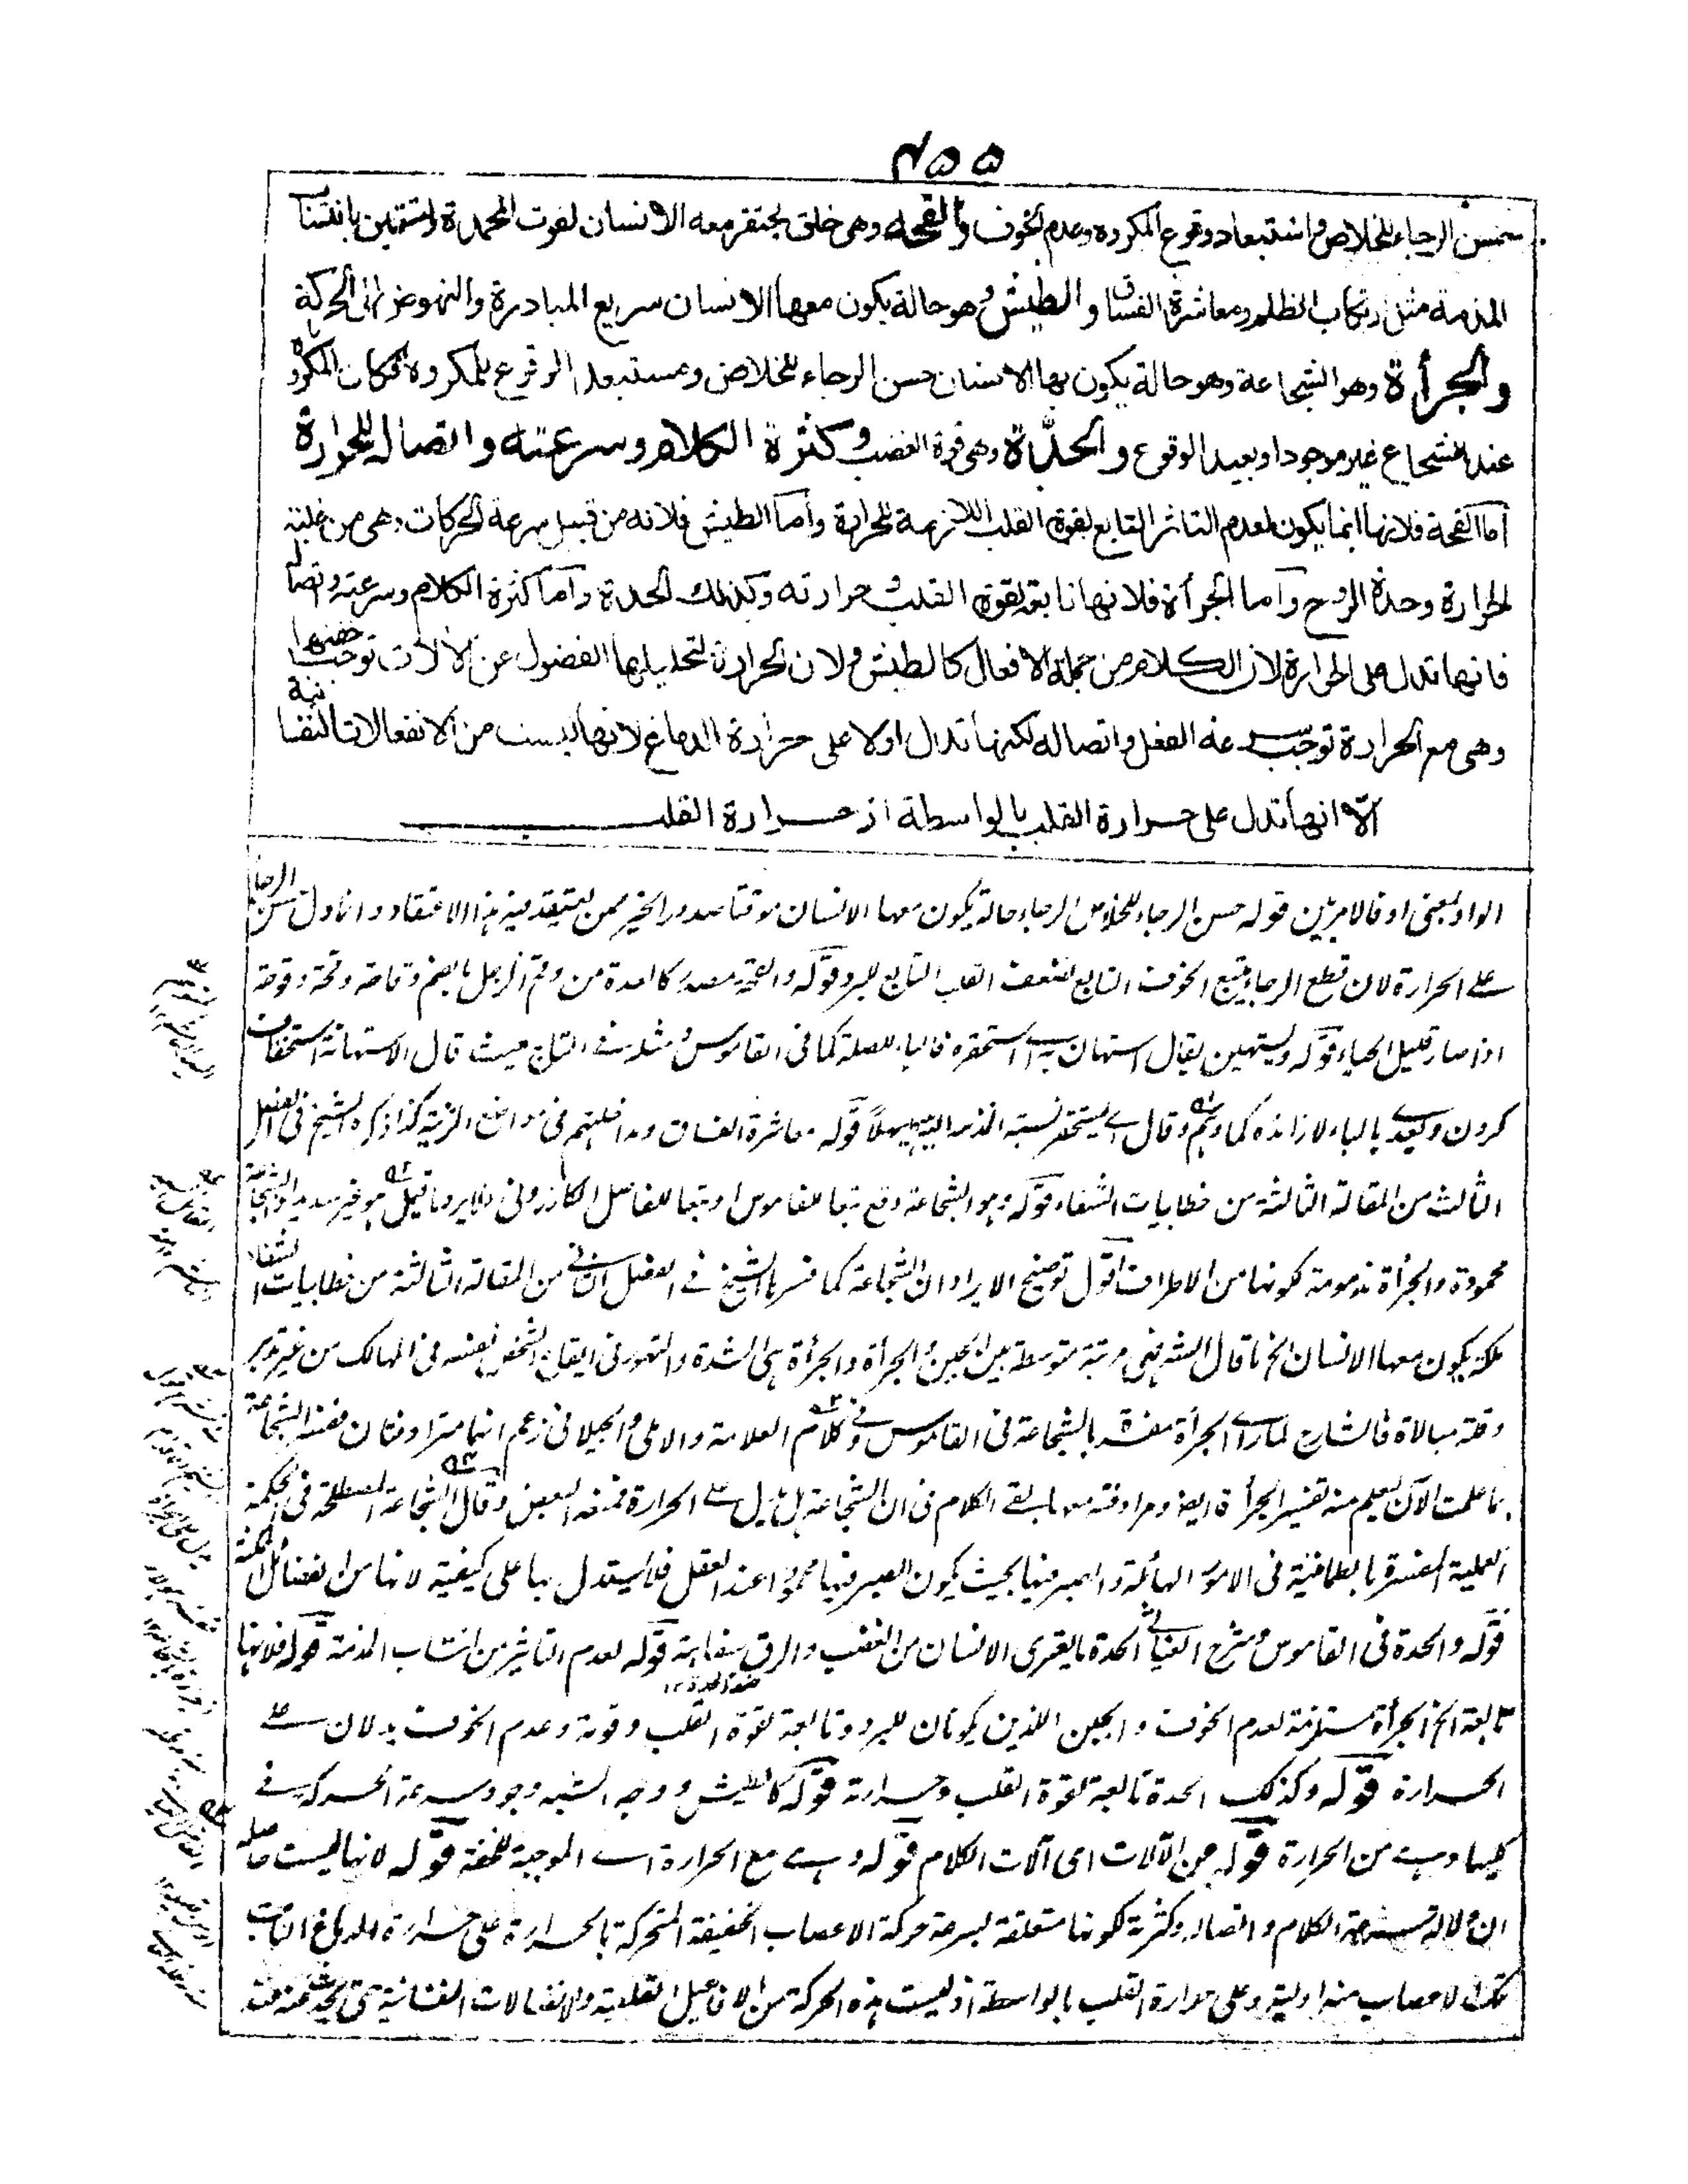 ٤٥٥
حسن الرجاء للخلاص واستبعاد وقوع المكروه وعدم الخوف والقحة وهى خلق يحتقر معه الانسان لفوت المحمدة ويستهين بانتساب
المذمة مثل ارتكاب الظلم ومعاشرة الفساق والطيش وهو حالة يكون معها الانسان سريع المبادرة والنهوض الى الحركة
والجرأة وهو الشجاعة وهو حالة يكون بها الانسان حسن الرجاء للخلاص ومستبعد الوقوع للمكروه فكان المكروه
عند الشجاع غير موجود او بعيد الوقوع والحدّة وهى قوة الغضب وكثرة الكلام وسرعته واتصاله للحرارة
اما القحة فلانها انما يكون لعدم التاثر التابع لقوة القلب اللازمة للحرارة وأما الطيش فلانه من قبيل سرعة الحركات وهى من غلبة
الحرارة وحدة الروح وأما الجرأة فلانها تابعة لقوة القلب وحرارته وكذلك الحدة وأما كثرة الكلام وسرعته واتصاله
فانها تدل على الحرارة لان الكلام من جملة الافعال كالطيش ولان الحرارة لتحليلها الفضول عن الآلات توجب خفتها
وهى مع الحرارة توجب سرعة الفعل واتصاله لكنها تدل اولا على حرارة الدماغ لانها ليست من الانفعالات النفسانية
الّا انها تدل على حرارة القلب بالواسطة اذ حرارة القلب
الواو بمعنى او فالامرين قوله حسن الرجاء للخلاص الرجاء حالة يكون معها الانسان موقنا صدور الخير ممن يعتقد فيه هذا الاعتقاد وانما دل حسن الرجاء
على الحرارة لان قطع الرجاء يتبع الخوف التابع لضعف القلب التابع للبرد قوله والقحة مصدر كالعدة من وقح الرجل بالضم وقاحة وقحة وقوحة
اذا صار قليل الحياء قوله ويستهين يقال استهان به اى استحقره فالباء للصلة كما فى القاموس ومثله فى التاج حيث قال الاستهانة استخفاف
كردن ويعدى بالباء لا زائدة كما وهم وقال اى يستحقر نسبة المذمة اليه جهلاً قوله معاشرة الفساق ومداخلتهم فى مواضع الريبة كذا ذكره الشيخ فى الفصل
الثالث من المقالة الثالثة من خطابيات الشفاء قوله وهو الشجاعة وقع تبعا للقاموس او تبعا للفاضل الكازرونى فلا يرد ما قيل هو غير سديد اذ الشجاعة
محمودة والجرأة مذمومة لكونها من الاطراف اقول توضيح الايراد ان الشجاعة كما فسرها الشيخ فى الفصل الثانى من المقالة الثالثة من خطابيات الشفاء
ملكة يكون معها الانسان الخ ما قال الشه فهى مرتبة متوسطة بين الجبن والجرأة والجرأة هى الشدة والتهور فى ايقاع الشخص نفسه فى المهالك من غير تدبر
وقلة مبالاة فالشارح لما رأى الجرأة مفسرة بالشجاعة فى القاموس وفى كلام العلامة والآملى والجيلانى زعم انهما مترادفتان ففسر الشجاعة
بما علمت الآن ليعلم منه تفسير الجرأة ايضا ومرادفته معها بقى الكلام فى ان الشجاعة هل تدل على الحرارة فمنعه البعض وقال الشجاعة المصطلحة فى الحكمة
العملية المفسرة بالطمانينة فى الامور الهائلة والصبر فيها بحيث يكون الصبر فيها محمودا عند العقل فلا يستدل بها على كيفية لانها من الفضائل الحكمية
قوله والحدة فى القاموس وشرح الغياثى الحدة ما يعترى الانسان من الغضب والنزق سفاهة قوله لعدم التاثير من انتساب المذمة قوله فلانها
تابعة الخ الجرأة مستلزمة لعدم الخوف والجبن اللذين يكونان للبرد وتابعة لقوة القلب وقوته وعدم الخوف يدلان على
الحرارة قوله وكذلك الحدة تابعة لقوة القلب وحرارته قوله كالطيش ووجه الشبه وجود سرعة الحركة فى
كليهما وهى من الحرارة قوله عن الآلات اى آلات الكلام قوله وهى مع الحرارة اى الموجبة للخفة قوله لانها ليست حاصله
ان دلالة سرعة الكلام واتصاله وكثرته لكونها متعلقة بسرعة حركة الاعصاب الخفيفة المتحركة بالحرارة على حرارة الدماغ النابت
تلك الاعصاب منه اولية وعلى حرارة القلب بالواسطة اذ ليست هذه الحركة من الافاعيل القلبية ولا نفعالات النفسانية حتى يحدث منه